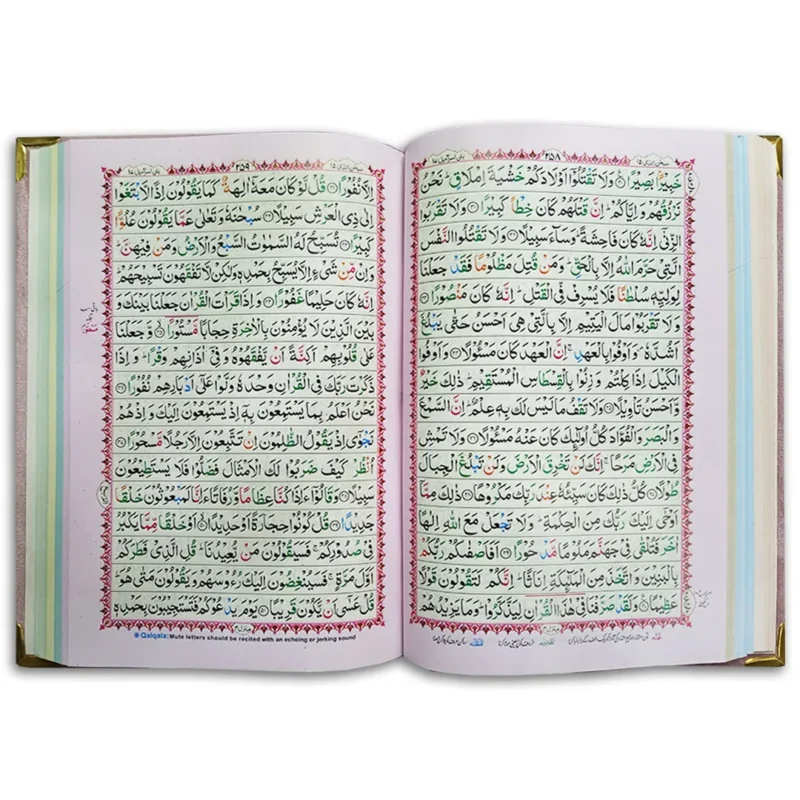 سبحن الذی ۱۵
۲۵۸
بنی اسرآءیل ۱۷
خَبِیْرًۢا بَصِیْرًا وَلَا تَقْتُلُوْۤا اَوْلَادَكُمْ خَشْیَةَ اِمْلَاقٍ ؕ نَحْنُ
نَرْزُقُهُمْ وَاِیَّاكُمْ ؕ اِنَّ قَتْلَهُمْ كَانَ خِطْاً كَبِیْرًا وَلَا تَقْرَبُوا
الزِّنٰۤی اِنَّهٗ كَانَ فَاحِشَةً ؕ وَسَآءَ سَبِیْلًا وَلَا تَقْتُلُوا النَّفْسَ
الَّتِیْ حَرَّمَ اللّٰهُ اِلَّا بِالْحَقِّ ؕ وَمَنْ قُتِلَ مَظْلُوْمًا فَقَدْ جَعَلْنَا
لِوَلِیِّهٖ سُلْطٰنًا فَلَا یُسْرِفْ فِّی الْقَتْلِ ؕ اِنَّهٗ كَانَ مَنْصُوْرًا
وَلَا تَقْرَبُوْا مَالَ الْیَتِیْمِ اِلَّا بِالَّتِیْ هِیَ اَحْسَنُ حَتّٰی یَبْلُغَ
اَشُدَّهٗ ۪ وَاَوْفُوْا بِالْعَهْدِ ۚ اِنَّ الْعَهْدَ كَانَ مَسْـُٔوْلًا وَاَوْفُوا
الْكَیْلَ اِذَا كِلْتُمْ وَزِنُوْا بِالْقِسْطَاسِ الْمُسْتَقِیْمِ ؕ ذٰلِكَ خَیْرٌ
وَّاَحْسَنُ تَاْوِیْلًا وَلَا تَقْفُ مَا لَیْسَ لَكَ بِهٖ عِلْمٌ ؕ اِنَّ السَّمْعَ
وَالْبَصَرَ وَالْفُؤَادَ كُلُّ اُولٰٓىِٕكَ كَانَ عَنْهُ مَسْـُٔوْلًا وَلَا تَمْشِ
فِی الْاَرْضِ مَرَحًا ۚ اِنَّكَ لَنْ تَخْرِقَ الْاَرْضَ وَلَنْ تَبْلُغَ الْجِبَالَ
طُوْلًا كُلُّ ذٰلِكَ كَانَ سَیِّئُهٗ عِنْدَ رَبِّكَ مَكْرُوْهًا ذٰلِكَ مِمَّاۤ
اَوْحٰۤی اِلَیْكَ رَبُّكَ مِنَ الْحِكْمَةِ ؕ وَلَا تَجْعَلْ مَعَ اللّٰهِ اِلٰهًا
اٰخَرَ فَتُلْقٰی فِیْ جَهَنَّمَ مَلُوْمًا مَّدْحُوْرًا اَفَاَصْفٰىكُمْ رَبُّكُمْ
بِالْبَنِیْنَ وَاتَّخَذَ مِنَ الْمَلٰٓىِٕكَةِ اِنَاثًا ؕ اِنَّكُمْ لَتَقُوْلُوْنَ قَوْلًا
عَظِیْمًا وَلَقَدْ صَرَّفْنَا فِیْ هٰذَا الْقُرْاٰنِ لِیَذَّكَّرُوْا ؕ وَمَا یَزِیْدُهُمْ
سبحن الذی ۱۵
۲۵۹
بنی اسرآءیل ۱۷
اِلَّا نُفُوْرًا قُلْ لَّوْ كَانَ مَعَهٗۤ اٰلِهَةٌ كَمَا یَقُوْلُوْنَ اِذًا لَّابْتَغَوْا
اِلٰی ذِی الْعَرْشِ سَبِیْلًا سُبْحٰنَهٗ وَتَعٰلٰی عَمَّا یَقُوْلُوْنَ عُلُوًّا
كَبِیْرًا تُسَبِّحُ لَهُ السَّمٰوٰتُ السَّبْعُ وَالْاَرْضُ وَمَنْ فِیْهِنَّ ؕ
وَاِنْ مِّنْ شَیْءٍ اِلَّا یُسَبِّحُ بِحَمْدِهٖ وَلٰكِنْ لَّا تَفْقَهُوْنَ تَسْبِیْحَهُمْ ؕ
اِنَّهٗ كَانَ حَلِیْمًا غَفُوْرًا وَاِذَا قَرَاْتَ الْقُرْاٰنَ جَعَلْنَا بَیْنَكَ وَ
بَیْنَ الَّذِیْنَ لَا یُؤْمِنُوْنَ بِالْاٰخِرَةِ حِجَابًا مَّسْتُوْرًا وَّجَعَلْنَا
عَلٰی قُلُوْبِهِمْ اَكِنَّةً اَنْ یَّفْقَهُوْهُ وَفِیْۤ اٰذَانِهِمْ وَقْرًا ؕ وَاِذَا
ذَكَرْتَ رَبَّكَ فِی الْقُرْاٰنِ وَحْدَهٗ وَلَّوْا عَلٰۤی اَدْبَارِهِمْ نُفُوْرًا
نَحْنُ اَعْلَمُ بِمَا یَسْتَمِعُوْنَ بِهٖۤ اِذْ یَسْتَمِعُوْنَ اِلَیْكَ وَاِذْ هُمْ
نَجْوٰۤی اِذْ یَقُوْلُ الظّٰلِمُوْنَ اِنْ تَتَّبِعُوْنَ اِلَّا رَجُلًا مَّسْحُوْرًا
اُنْظُرْ كَیْفَ ضَرَبُوْا لَكَ الْاَمْثَالَ فَضَلُّوْا فَلَا یَسْتَطِیْعُوْنَ
سَبِیْلًا وَقَالُوْۤا ءَاِذَا كُنَّا عِظَامًا وَّرُفَاتًا ءَاِنَّا لَمَبْعُوْثُوْنَ خَلْقًا
جَدِیْدًا قُلْ كُوْنُوْا حِجَارَةً اَوْ حَدِیْدًا اَوْ خَلْقًا مِّمَّا یَكْبُرُ
فِیْ صُدُوْرِكُمْ ۚ فَسَیَقُوْلُوْنَ مَنْ یُّعِیْدُنَا ؕ قُلِ الَّذِیْ فَطَرَكُمْ
اَوَّلَ مَرَّةٍ ۚ فَسَیُنْغِضُوْنَ اِلَیْكَ رُءُوْسَهُمْ وَیَقُوْلُوْنَ مَتٰی هُوَ ؕ
قُلْ عَسٰۤی اَنْ یَّكُوْنَ قَرِیْبًا یَوْمَ یَدْعُوْكُمْ فَتَسْتَجِیْبُوْنَ بِحَمْدِهٖ
Qalqala: Mute letters should be recited with an echoing or jerking sound